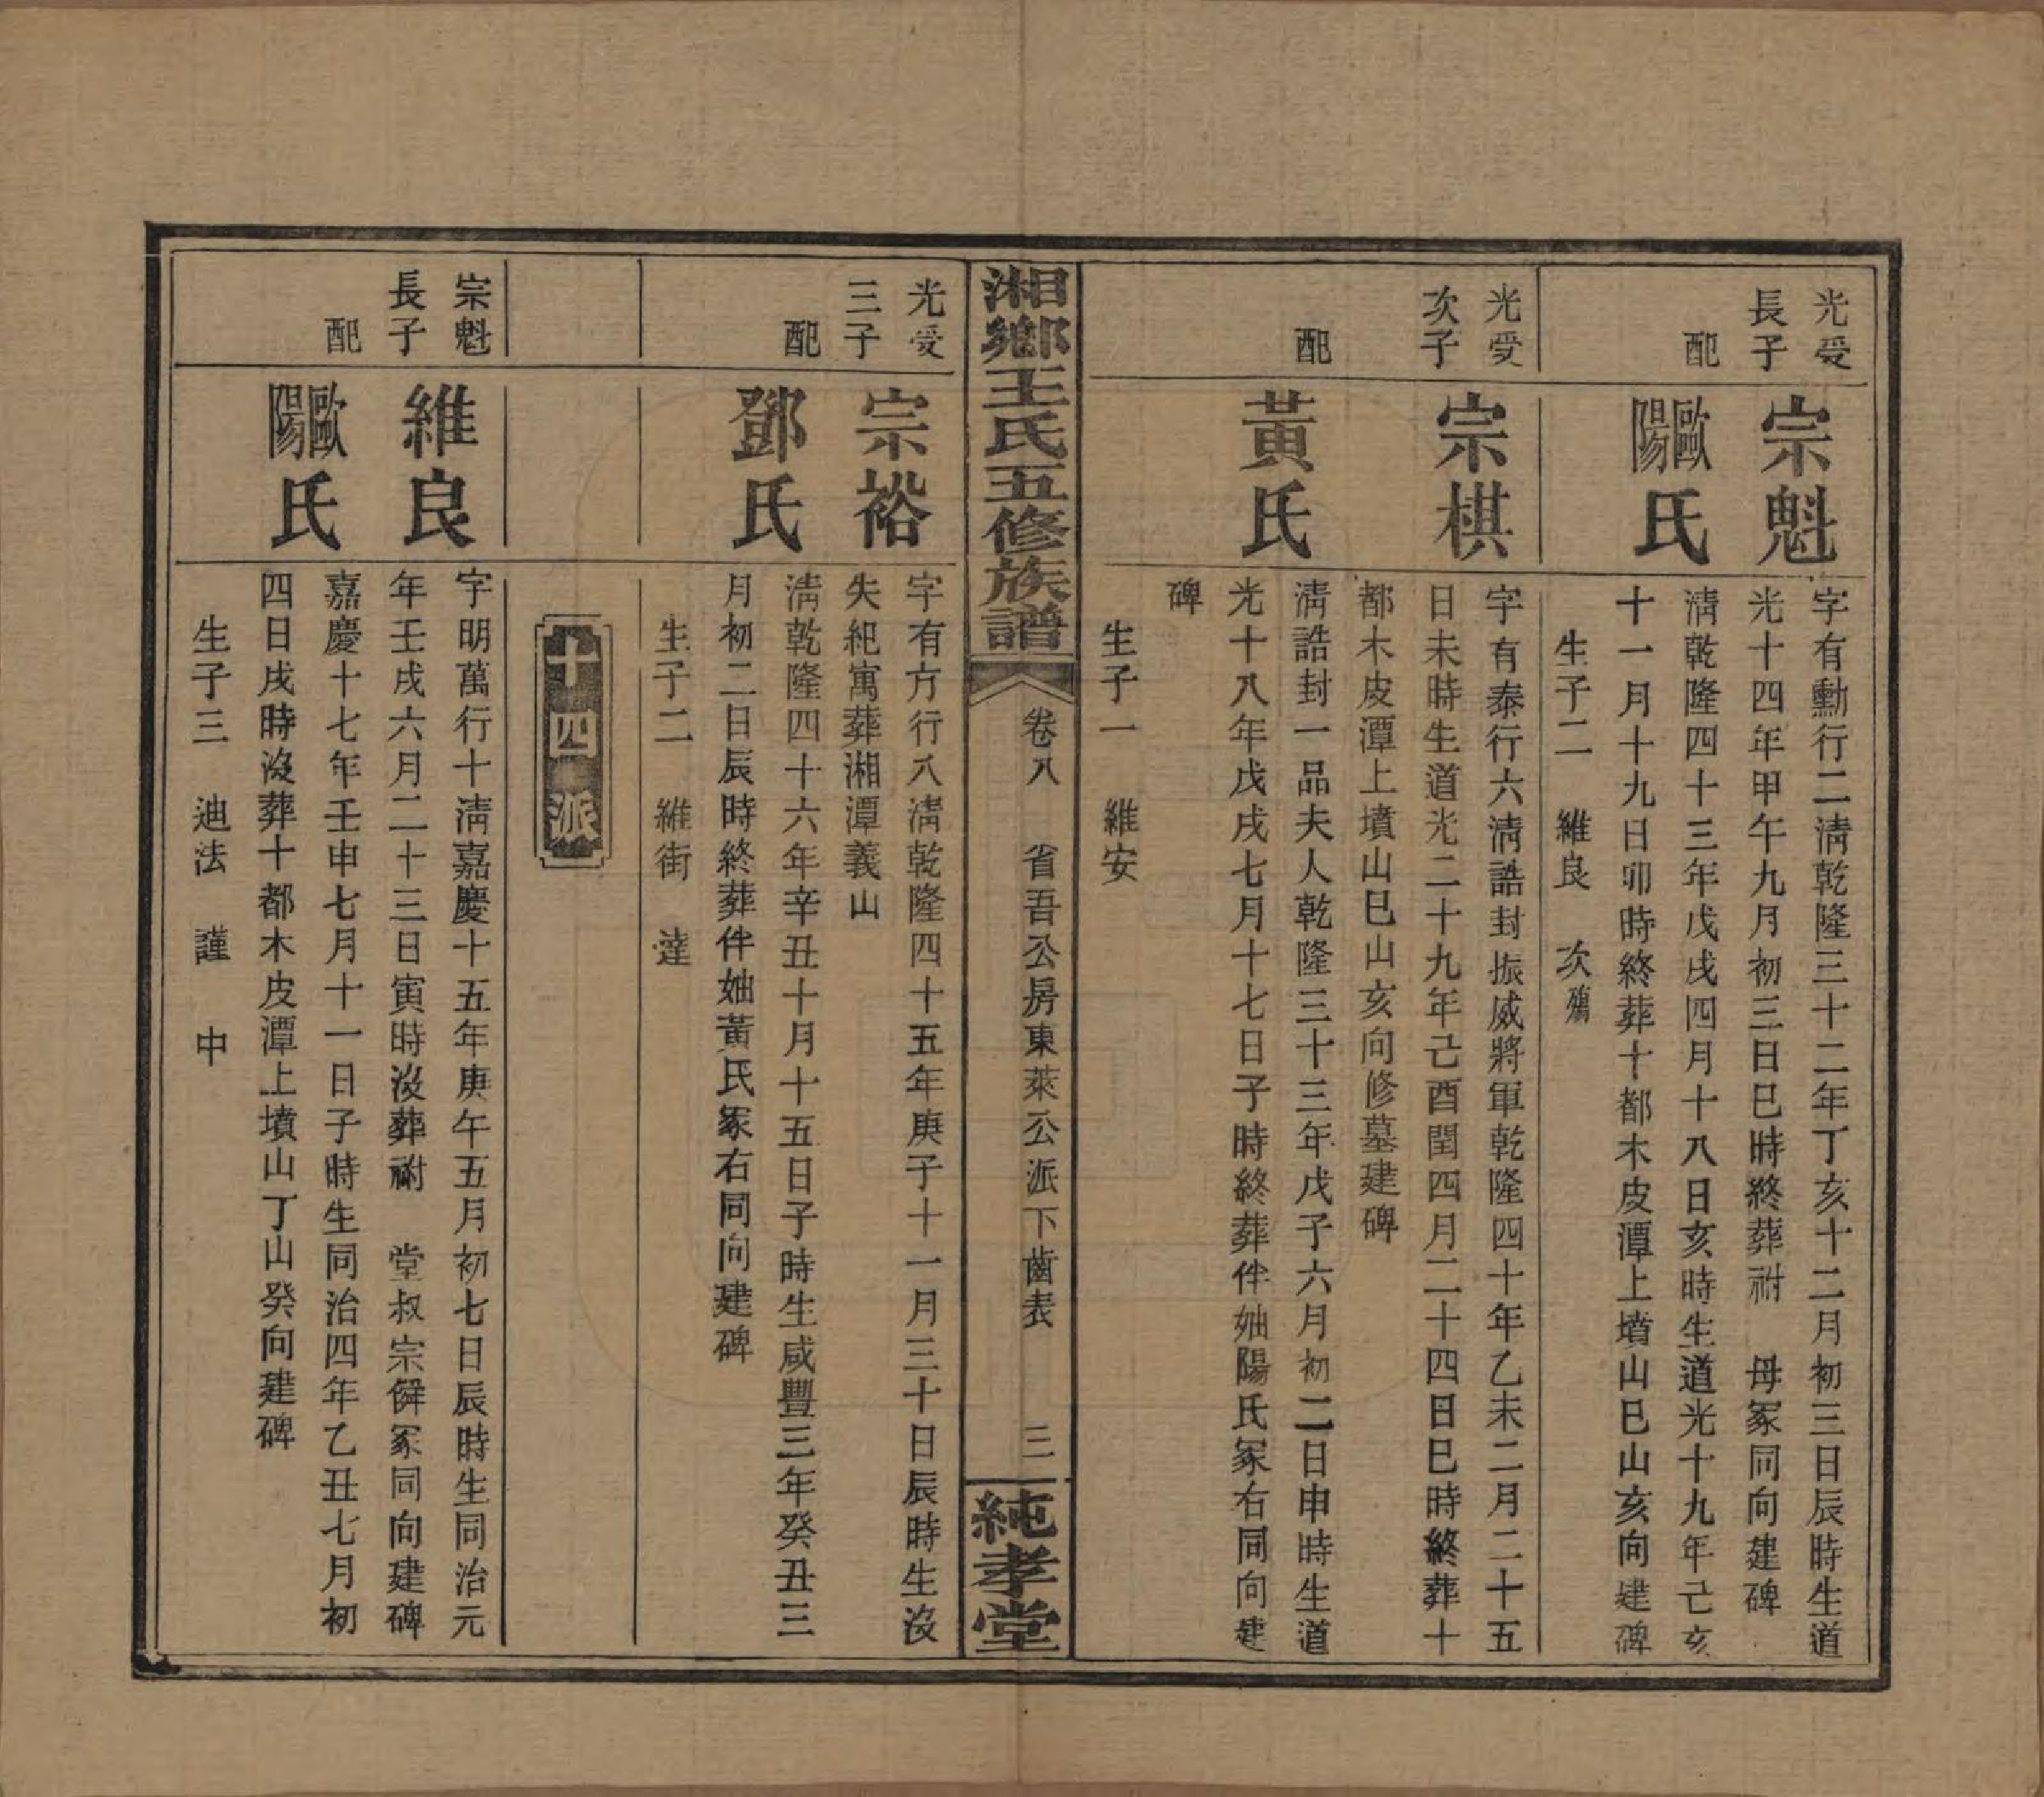 光受
長子
宗魁
字有勳行二淸乾隆三十二年丁亥十二月初三日辰時生道
光十四年甲午九月初三日巳時終葬祔　母冢同向建碑
配
歐陽氏
淸乾隆四十三年戊戌四月十八日亥時生道光十九年己亥
十一月十九日卯時終葬十都木皮潭上墳山巳山亥向建碑
生子二　維良　次殤
光受
次子
宗棋
字有泰行六淸誥封振威將軍乾隆四十年乙未二月二十五
日未時生道光二十九年己酉閏四月二十四日巳時終葬十
都木皮潭上墳山巳山亥向修墓建碑
配
黃氏
淸誥封一品夫人乾隆三十三年戊子六月初二日申時生道
光十八年戊戌七月十七日子時終葬伴妯陽氏冢右同向建
碑
生子一　維安
湘鄉王氏五修族譜
卷八　省吾公房東萊公派下齒表　三
純孝堂
光受
三子
宗裕
字有方行八淸乾隆四十五年庚子十一月三十日辰時生沒
失紀寓葬湘潭義山
配
鄧氏
淸乾隆四十六年辛丑十月十五日子時生咸豐三年癸丑三
月初二日辰時終葬伴妯黃氏冢右同向建碑
生子二　維街　達
十四派
宗魁
長子
維良
字明萬行十淸嘉慶十五年庚午五月初七日辰時生同治元
年壬戌六月二十三日寅時沒葬祔　堂叔宗僯冢同向建碑
配
歐陽氏
嘉慶十七年壬申七月十一日子時生同治四年乙丑七月初
四日戌時沒葬十都木皮潭上墳山丁山癸向建碑
生子三　迪法　謹　中